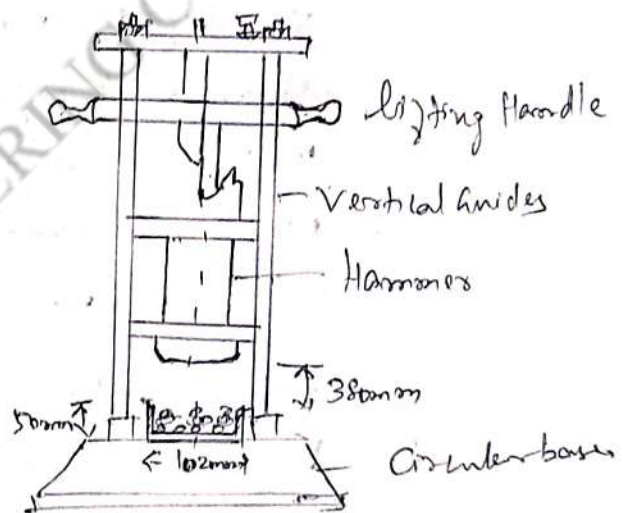 Lifting Handle
Vertical Guides
Hammer
380mm
50mm
102mm
Circular base
ERING